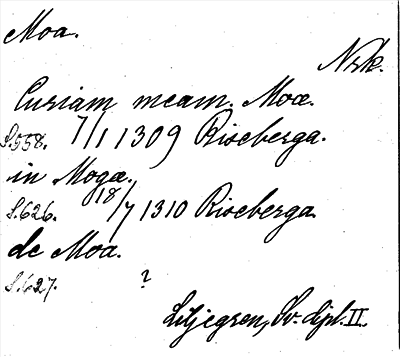 Moa.
Nrk.
Curiam meam. Moæ.
S.558. 7/1 1309 Riseberga.
in Mogæ.
S.626. 18/7 1310 Riseberga.
de Moa.
S.627. ?
Liljegren, Sv. dipl. II.